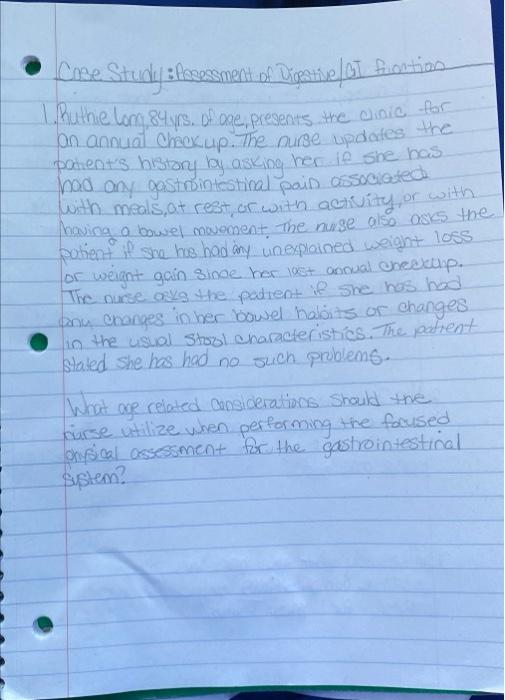 Case Study: Assessment of Digestive/GI function
1. Ruthie Long, 84 yrs. of age, presents the clinic for
an annual checkup. The nurse updates the
patient's history by asking her if she has
had any gastrointestinal pain associated
with meals, at rest, or with activity, or with
having a bowel movement. The nurse also asks the
patient if she has had any unexplained weight loss
or weight gain since her last annual checkup.
The nurse asks the patient if she has had
any changes in her bowel habits or changes
in the usual stool characteristics. The patient
stated she has had no such problems.
What age related considerations should the
nurse utilize when performing the focused
physical assessment for the gastrointestinal
system?